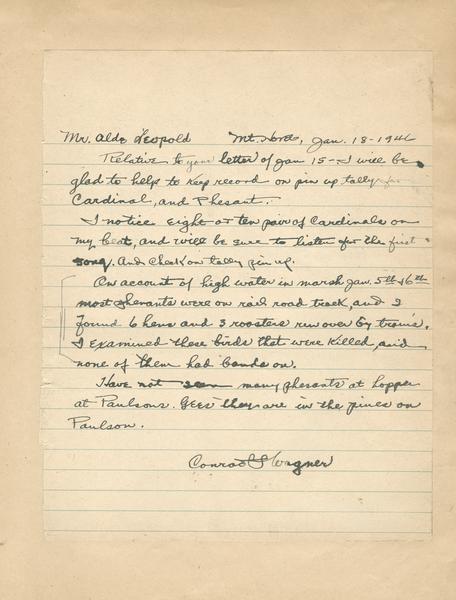 Mr. Aldo Leopold Mt. Horeb, Jan. 18-1946
Relative to your letter of Jan 15- I will be
glad to help to keep record on pin up tally for
Cardinal, and Phesant.
I notice eight or ten pair of Cardinals on
my beat, and will be sure to listen for the first
song. And check on tally pin up.
On account of high water in marsh Jan. 5th & 6th
most phesants were on rail road track, and I
found 6 hens and 3 roosters run over by trains.
I examined these birds that were killed, and
none of them had bands on.
Have not seen many phesants at hopper
at Paulsons. Gees they are in the pines on
Paulson.
Conrad Wagner